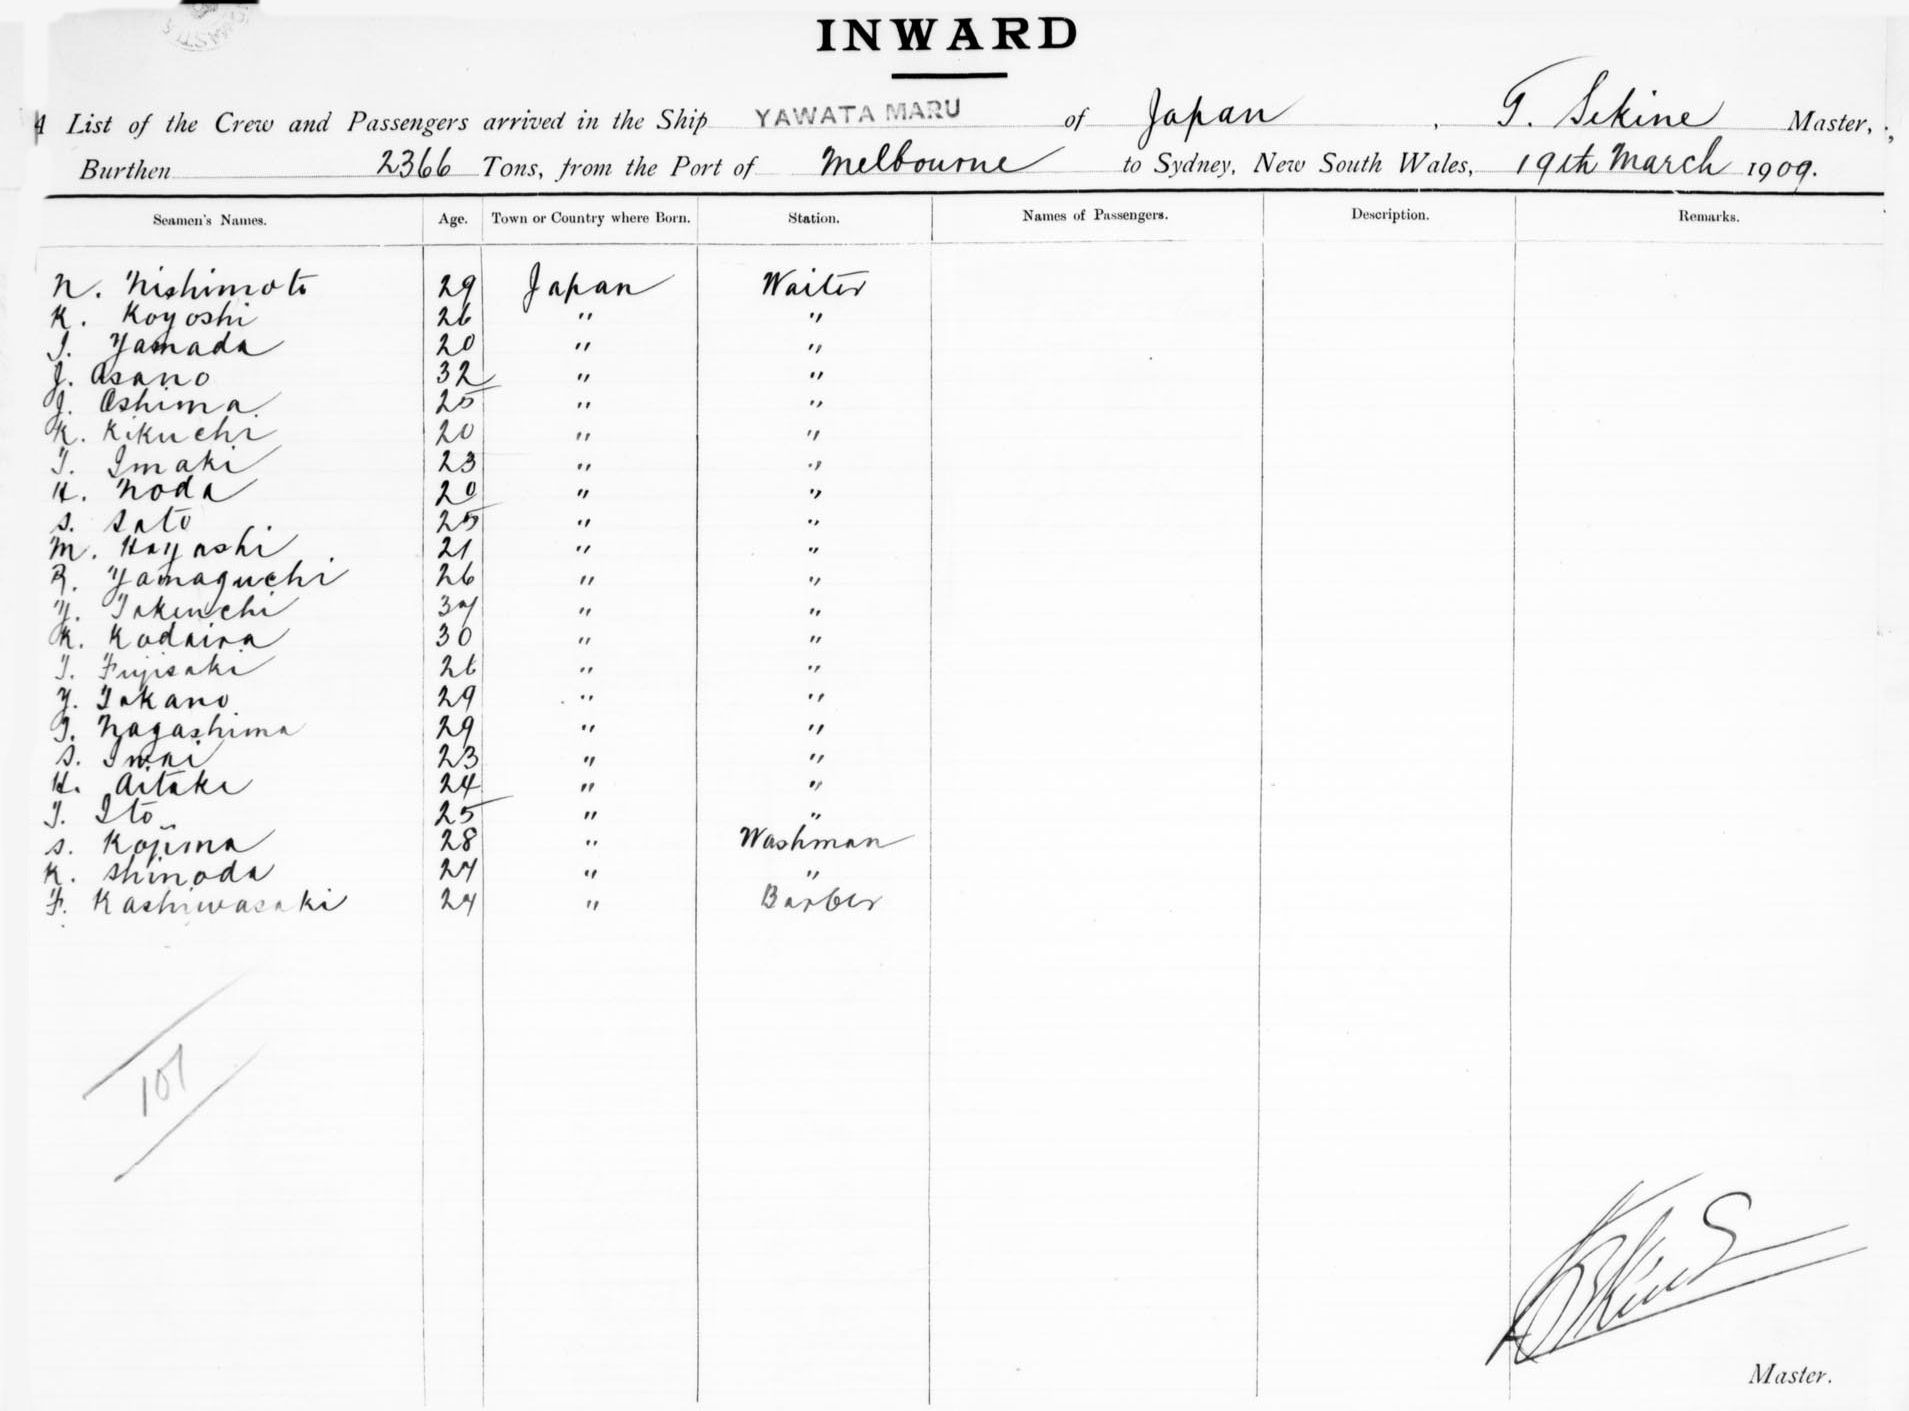 INWARD
A List of the Crew and Passengers arrived in the Ship YAWATA MARU of Japan, T. Sekine Master,
Burthen 2366 Tons, from the Port of Melbourne to Sydney, New South Wales, 19th March 1909.
Seamen's Names. Age. Town or Country where Born. Station. Names of Passengers. Description. Remarks.
N. Nishimoto 29 Japan Waiter
K. Koyoshi 26 " "
I. Yamada 20 " "
J. Asano 32 " "
J. Oshima 25 " "
K. Kikuchi 20 " "
T. Imaki 23 " "
H. Noda 20 " "
S. Sato 25 " "
M. Hayashi 21 " "
R. Yamaguchi 26 " "
Y. Takeuchi 34 " "
K. Kodaira 30 " "
T. Fujisaki 26 " "
Y. Takano 29 " "
T. Nagashima 29 " "
S. Imai 23 " "
H. Aitake 24 " "
T. Ito 25 " "
S. Kojima 28 " Washman
K. Shinoda 24 " "
F. Kashiwasaki 24 " Barber
107
Master.